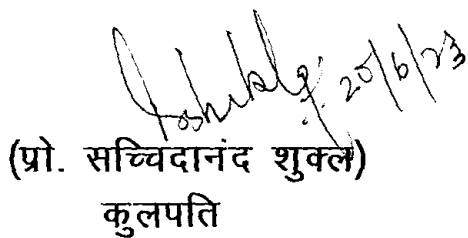 20/6/23
(प्रो. सच्चिदानंद शुक्ल)
कुलपति